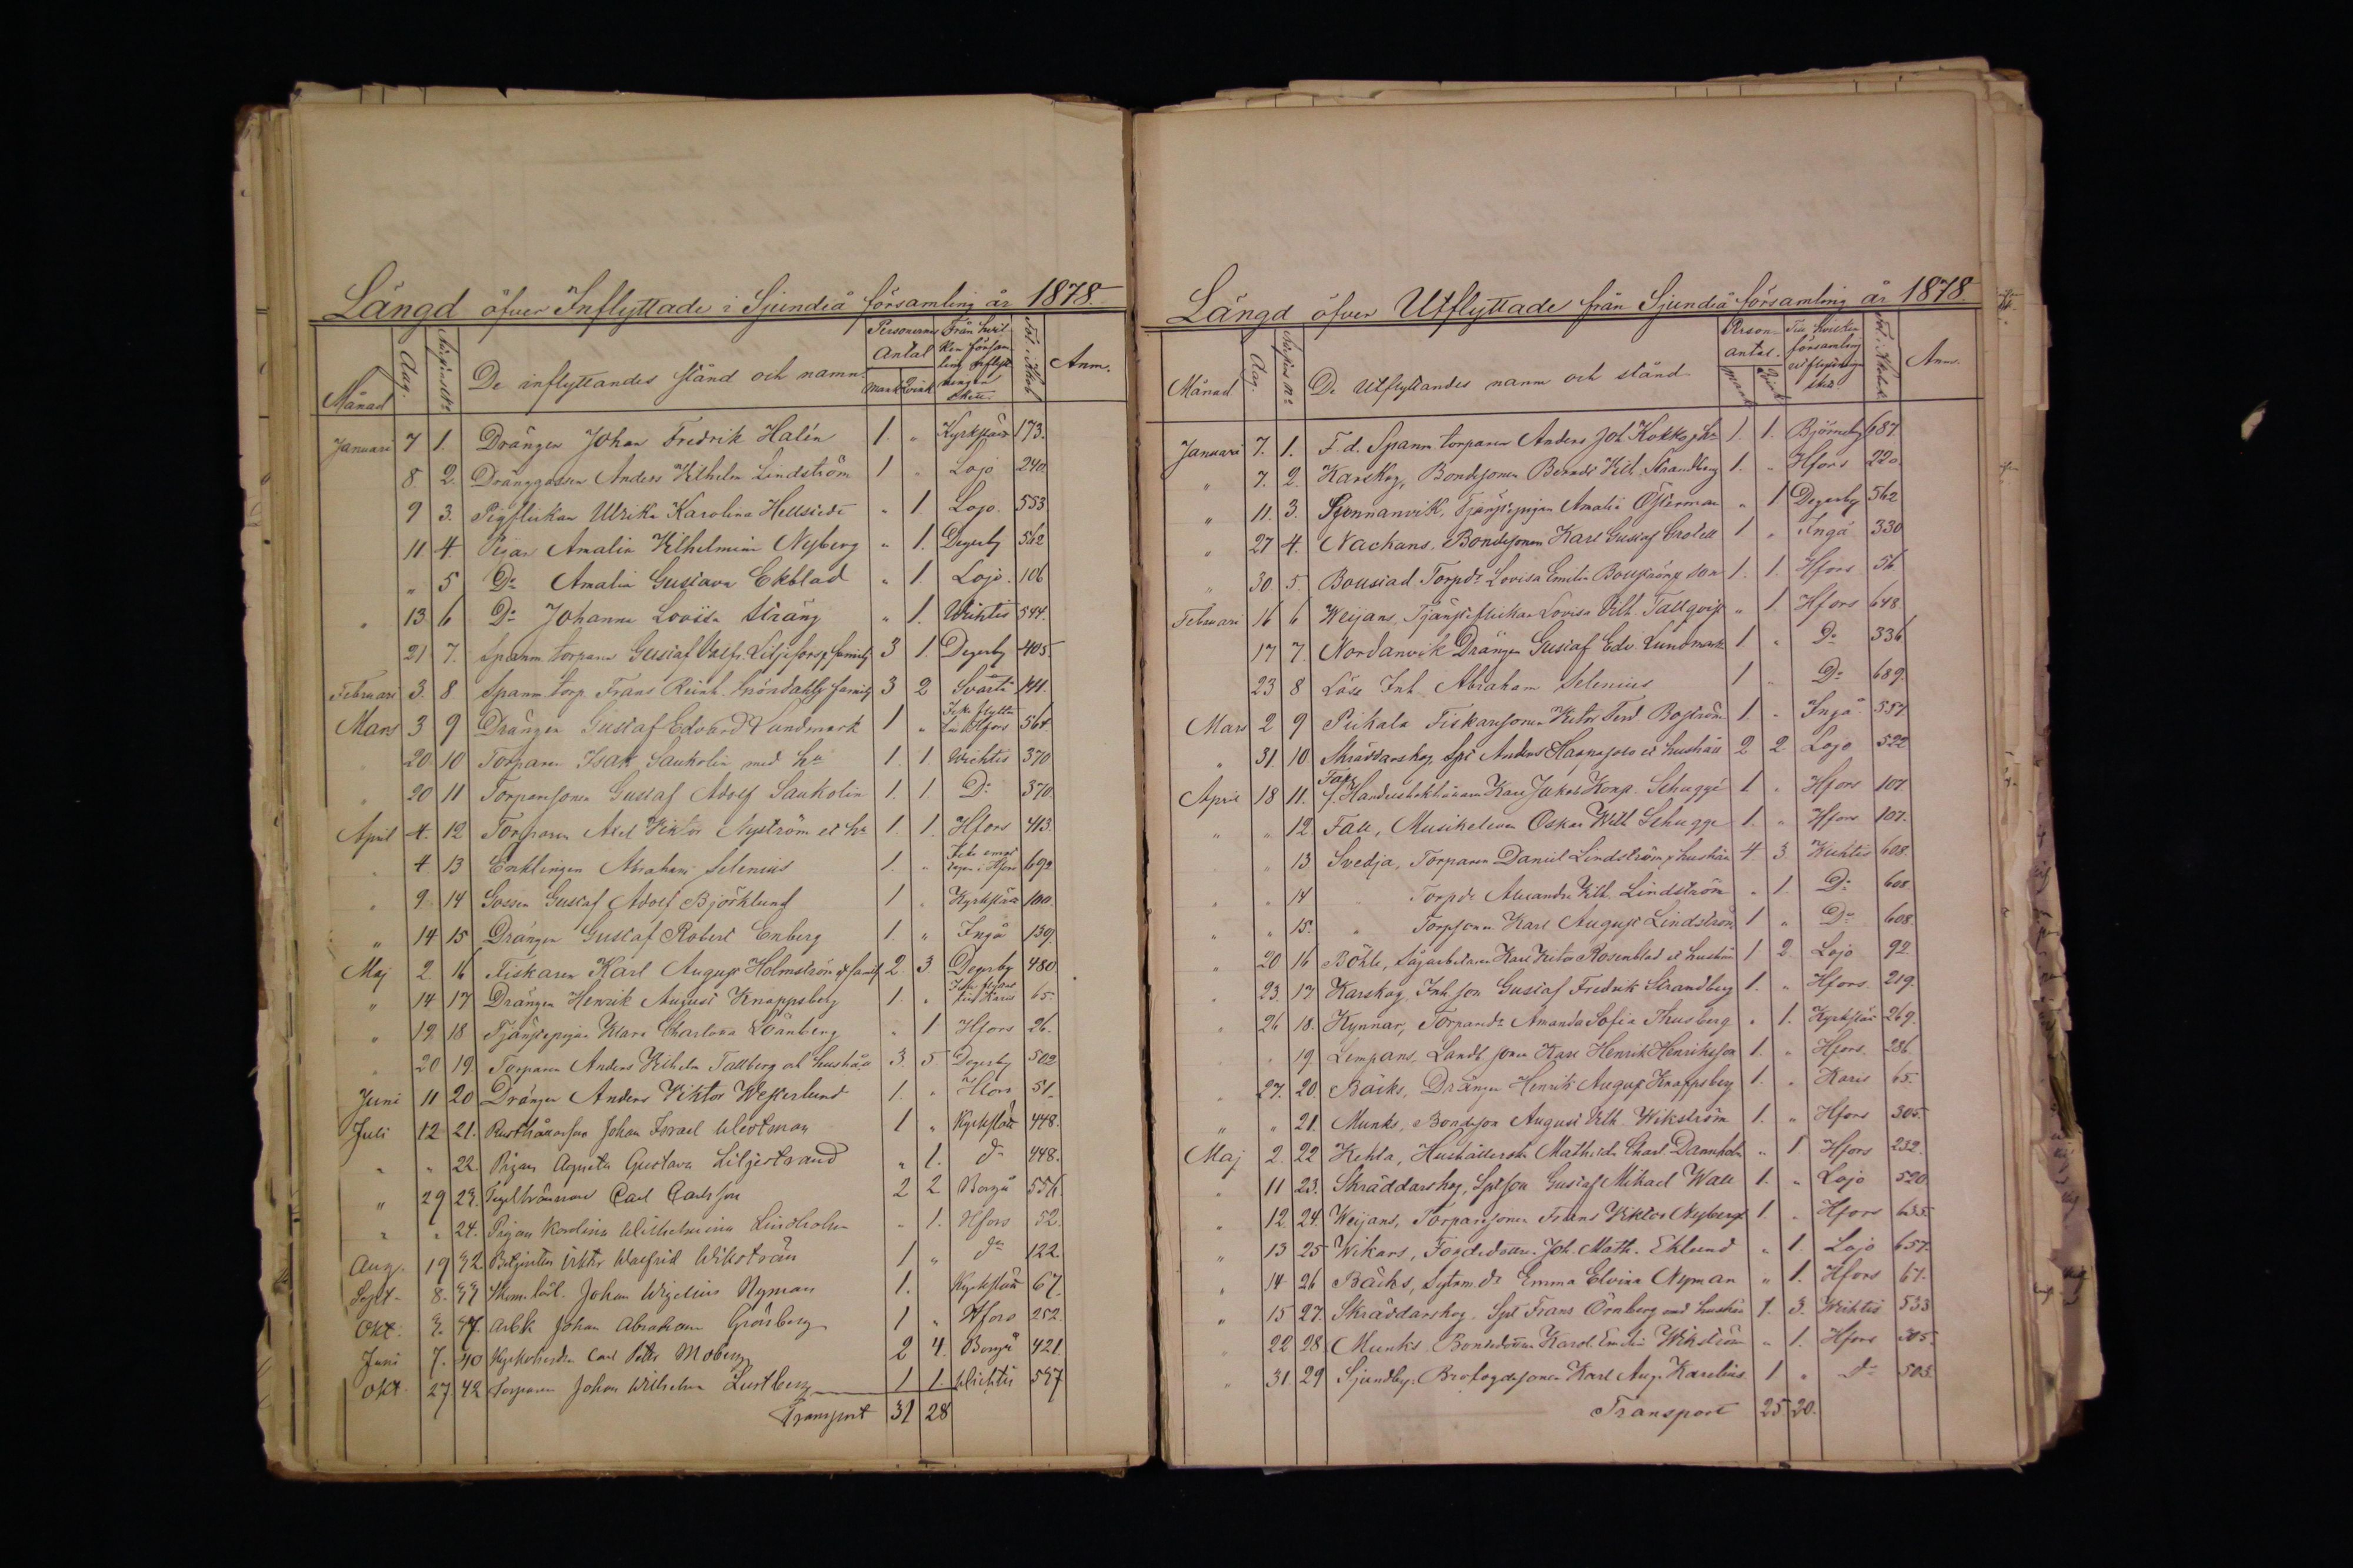 Längd öfver Inflyttade i Sjundeå församling år 1878.
Månad Dag. De inflyttandes stånd och namn. Personernas Antal Mank. Qvink. Från hvilken församling inflyttningen skett. Fol. i Kbok Anm.
Januari 7 1. Drängen Johan Fredrik Halén 1. " Kyrkslätt 173.
8 2. Dränggossen Anders Vilhelm Lindström 1 " Lojo 240.
9 3. Pigflickan Ulrika Karolina Hellstedt " 1 Lojo. 553
11 4. Pigan Amalia Vilhelmina Nyberg " 1. Degerby 562
" 5 Do Amalia Gustava Ekblad " 1. Lojo. 106
" 13 6 Do Johanna Lovisa Sträng " 1. Wichtis 544.
21 7. Spanm. torparen Gustaf Valfr. Liljefors & familj 3 1. Degerby 405.
Februari 3. 8 Spanm. torp. Frans Reinh. Gröndahl & familj 3 2 Svartå 141.
Mars 3 9 Drängen Gustaf Edvard Lundmark 1 " Icke flyttat till Hfors 564.
20 10 Torparen Isak Saukolin med hu 1. 1. Wichtis 370
20 11 Torparesonen Gustaf Adolf Saukolin 1. 1. Do 370
April 4. 12 Torparen Axel Viktor Nyström et hu 1. 1. Hfors 413.
4 13 Enklingen Abraham Selenius 1. " Icke emottagen i Hfors 692.
9 14 Gossen Gustaf Adolf Björklund 1 " Kyrkslätt 100.
" 14 15 Drängen Gustaf Robert Enberg 1. " Ingå 139.
Maj 2 16 Fiskaren Karl August Holmström & familj 2. 3 Degerby 480.
" 14 17 Drängen Henrik August Knappsberg 1. " till Karis 65.
" 19 18 Tjänstepigan Klara Charlotta Lönnberg " 1 Hfors 26.
20 19. Torparen Anders Vilhelm Tallberg och hushåll 3. 5. Degerby 502
Juni 11 20 Drängen Anders Viktor Westerlund 1. " Hfors 51.
Juli 12 21. Rusthållarson Johan Israel Westman 1 " Kyrkslätt 448.
" " 22. Pigan Agneta Gustava Liljestrand " 1. do 448.
" 29 23. Carl Carlsson 2 2 Borgå 556.
" " 24. Pigan Karolina Wilhelmina Lindholm " 1. Hfors 52.
Aug. 19 32. Betjenten Viktor Walfrid Wikström 1 " do 122.
Sept. 8. 33 Johan Wigelius Nyman 1. Kyrkslätt 67.
Okt. 37. Arbk. Johan Abraham Grönberg 1 " Hfors 252.
Juni 7. 40 Kyrkoherden Carl Petter Moberg 2 4. Borgå 421.
Okt. 27. 42 Torparen Johan Wilhelm Lustberg 1 1. Wichtis 537
Transport 31 28
Längd öfver Utflyttade från Sjundeå församling år 1878.
Månad Dag. De Utflyttandes namn och stånd Person antal. Till hvilken församling utflyttningen sker Anm.
Januari 7. 1. F. d. Spanm. torparen Anders Joh. Kokko & hu 1. 1. Björneby 687.
" 7. 2. Karskog, Bondesonen Berndt Vilh. Strandberg 1. " Hfors 220
" 11. 3. Tjenstepigan Amalia Österman " 1 Degerby 562
" 27 4. Nackans, Bondesonen Karl Gustaf Grotell 1 " Ingå 330
" 30 5 Boustad Torpdr Lovisa Emilia son 1. 1. Hfors 56
Februari 16 6 Weijans, Tjänsteflickan Lovisa Vilh. Tallqvist " 1. Hfors 648.
17 7. Nordanvik Drängen Gustaf Edv. Lundmark 1 " Do 336
23 8 Löse Inh Abraham Selenius 1 " Do 689.
Mars 2 9 Pickala Fiskaresonen Victor Ferd. Boström 1. " Ingå 557.
" 31. 10. Skräddarskog, Spt Anders et hushåll 2 2 Lojo 522
April 18 11. Fall, Karl Jakob Konr. Schuggé 1 " Hfors 107.
" " 12 Fall, Musikeleven Oskar Wilh. Schugge 1. " Hfors 107.
" 13 Svedja, Torparen Daniel Lindström & hushåll 4. 3. Wichtis 608.
" " 14 " Torpdr Alexandra Vilh. Lindström " 1. Do 608.
" " 15. " Torpsonen Karl August Lindström 1 " Do 608.
" 20 16 Böhle, Sågarbetaren Karl Victor Rosenblad et hushåll 1 2. Lojo 92
" 23. 17 Karskog, Inh. son Gustaf Fredrik Strandberg 1. " Hfors. 219.
" 26 18. Kynnar, Torparedr Amanda Sofia Thusberg " 1. Kyrkslätt 269.
" " 19 Lempans, Landb. sonen Karl Henrik Henriksson 1. " Hfors. 286.
" 27. 20. Bäcks, Drängen Henrik August Knappsberg 1. " Karis 65.
" " 21. Munks, Bondeson August Vilh. Wikström 1. " Hfors 305.
Maj 2. 22 Kehla, Hushållerska Mathilda Charl. Dannholm " 1 Hfors 232.
" 11 23. Skräddarskog, Sptson Gustaf Mikael Wall 1. " Lojo 520
" 12. 24. Weijans, Torparesonen Frans Viktor Nyberg 1. " Hfors 655.
" 13 25 Wikars, Joh. Math. Eklund " 1. Lojo 657.
" 14 26 Bäcks, Sytnm. dr Emma Elvira Nyman " 1. Hfors 67.
" 15 27. Skräddarskog, Spt Frans Örnberg med hushåll 1. 3. Wichtis 533
" 22 28 Munks Bondedottern Karol. Emilia Wikström " 1. Hfors 305.
" 31. 29 Sjundby, Brofogdesonen Karl Aug. Karelius 1 " do 503.
Transport 25. 20.